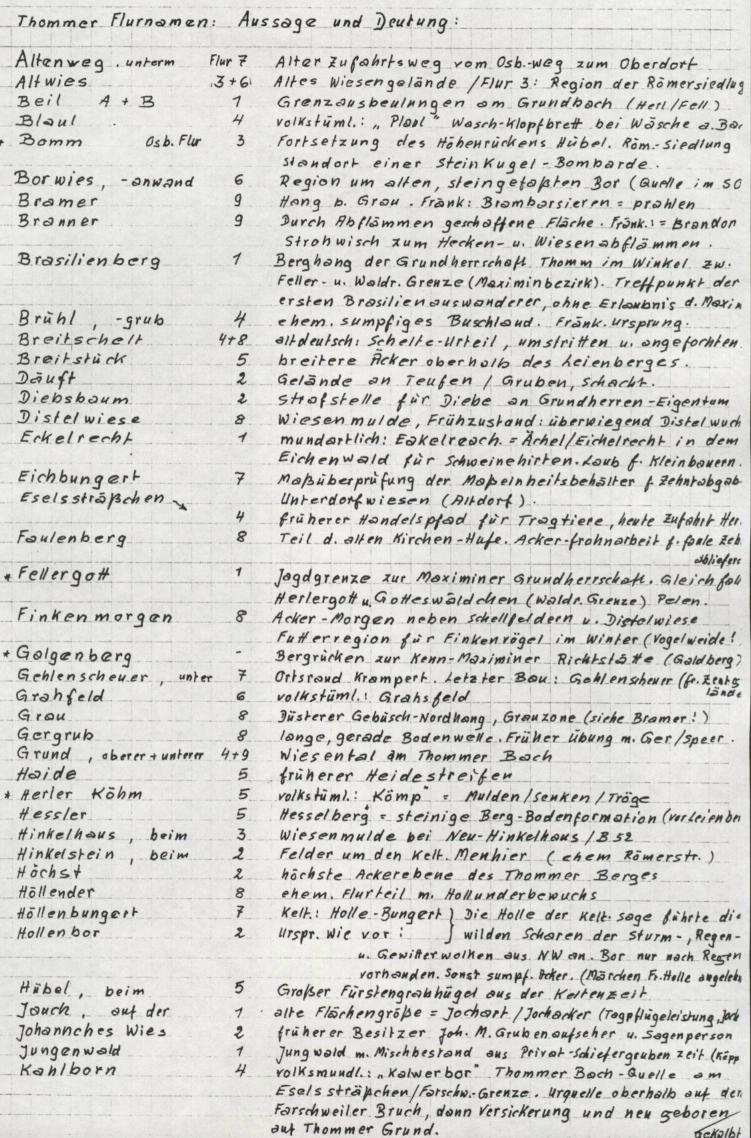 Thommer Flurnamen: Aussage und Deutung:
Altenweg, unterm Flur 7 Alter Zufahrtsweg vom Osb.-weg zum Oberdorf
Altwies 3+6 Altes Wiesengelände / Flur 3: Region der Römersiedlug
Beil A + B 1 Grenzausbeulungen am Grundbach (Herl/Fell)
Blaul 4 volkstüml.: "Plaul" Wasch-Klopfbrett bei Wäsche a. Bac
Bomm Osb. Flur 3 Fortsetzung des Höhenrückens Hübel. Röm.-Siedlung
Standort einer Steinkugel-Bombarde.
Borwies, -anwand 6 Region um alten, steingefaßten Bor (Quelle im SO
Bramer 9 Hang b. Grau. Fränk: Brambarsieren = prahlen
Branner 9 Durch Abflämmen geschaffene Fläche. Fränk.: = Brandor
Strohwisch zum Hecken- u. Wiesenabflämmen.
Brasilienberg 1 Berghang der Grundherrschaft Thomm im Winkel zw.
Feller- u. Waldr. Grenze (Maximinbezirk). Treffpunkt der
ersten Brasilienauswanderer, ohne Erlaubnis d. Maxim
Brühl, -grub 4 ehem. sumpfiges Buschland. Fränk. Ursprung.
Breitschelt 4+8 altdeutsch: Schelte-Urteil, umstritten u. angefochten.
Breitstück 5 breitere Äcker oberhalb des Leienberges.
Däuft 2 Gelände an Teufen / Gruben, Schacht.
Diebsbaum 2 Strafstelle für Diebe an Grundherren-Eigentum
Distelwiese 8 Wiesenmulde, Frühzustand: überwiegend Distelwuch
Eckelrecht 1 mundartlich: Eakelreach. = Ächel/Eichelrecht in dem
Eichenwald für Schweinehirten. Laub f. Kleinbauern.
Eichbungert 7 Maßüberprüfung der Maßeinheitsbehälter f. Zehntabgab
Eselssträßchen Unterdorfwiesen (Altdorf).
4 früherer Handelspfad für Tragtiere, heute Zufahrt Her.
Faulenberg 8 Teil d. alten Kirchen-Hufe. Acker-frohnarbeit f. faule Zeh
abliefere
* Fellergott 1 Jagdgrenze zur Maximiner Grundherrschaft. Gleichfall
Herlergott u. Gotteswäldchen (Waldr. Grenze) Pelen.
Finkenmorgen 8 Acker-Morgen neben Schellfeldern u. Distelwiese
Futterregion für Finkenvögel im Winter (Vogelweide!
* Galgenberg - Bergrücken zur Kenn-Maximiner Richtstätte (Galdberg)
Gehlenscheuer, unter 7 Ortsrand Krampert. Letzter Bau: Gehlenscheuer (fr.
lände
Grahfeld 6 volkstüml.: Grahsfeld
Grau 8 Düsterer Gebüsch-Nordhang, Grauzone (siehe Bramer!)
Gergrub 8 lange, gerade Bodenwelle. Früher Übung m. Ger/Speer.
Grund, oberer + unterer 4+9 Wiesental am Thommer Bach
Haide 5 früherer Heidestreifen
* Herler Köhm 5 volkstüml.: "Kömp" = Mulden/Senken/Tröge
Hessler 5 Hesselberg = steinige Berg-Bodenformation (vorleienbe
Hinkelhaus, beim 3 Wiesenmulde bei Neu-Hinkelhaus / B 52
Hinkelstein, beim 2 Felder um den kelt. Menhier (ehem Römerstr.)
Höchst 2 höchste Ackerebene des Thommer Berges
Höllender 8 ehem. Flurteil m. Hollunderbewuchs
Höllenbungert 7 Kelt.: Holle-Bungert } Die Holle der kelt. Sage führte die
Hollenbor 2 Urspr. wie vor: } wilden Scharen der Sturm-, Regen-
u. Gewitterwolken aus NW an. Bor nur nach Regen
vorhanden. Sonst sumpf. Acker. (Märchen Fr. Holle angelehn
Hübel, beim 5 Großer Fürstengrabhügel aus der Keltenzeit
Jauch, auf der 1 alte Flächengröße = Jochart/Jochacker (Tagpflügeleistung,
Johannches Wies 2 früherer Besitzer Joh. M. Grubenaufseher u. Sagenperson
Jungenwald 1 Jungwald m. Mischbestand aus Privat-Schiefergrubenzeit (Köpp
Kahlborn 4 volksmundl.: "Kalwerbor" Thommer Bach-Quelle am
Eselssträßchen/Farschw.-Grenze. Urquelle oberhalb auf den
Farschweiler Bruch, dann Versickerung und neu geboren
auf Thommer Grund. gekalbt